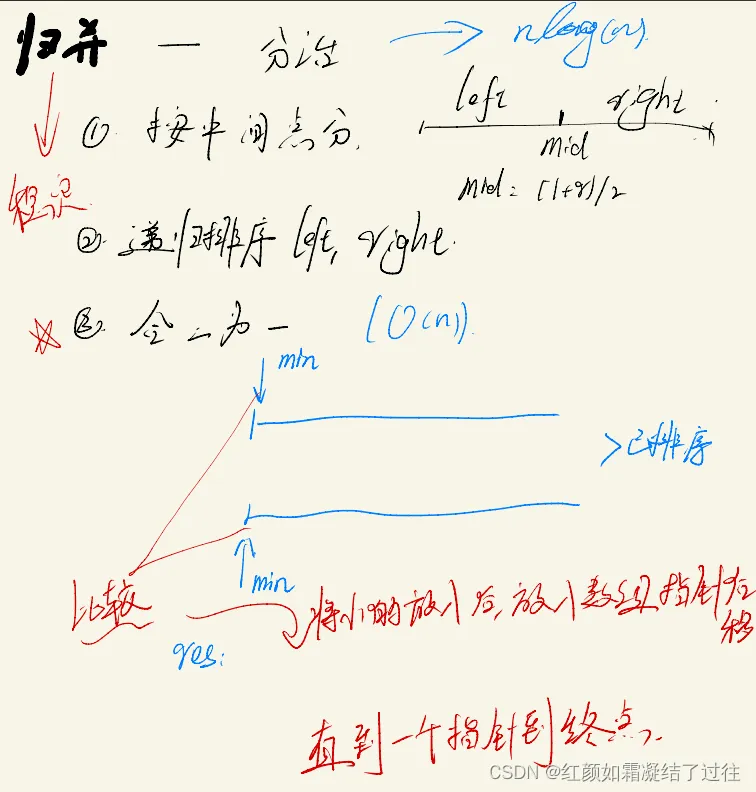 归并 — 分治 → nlog(n)
left right
① 按中间点分.
mid
mid = (l+r)/2
稳定
② 递归排序 left, right.
③ 合二为一 (O(n))
min
>已排序
min
比较
将小的放入后,放入数组指针后移
res:
直到一个指针到终点.
CSDN @红颜如霜凝结了过往